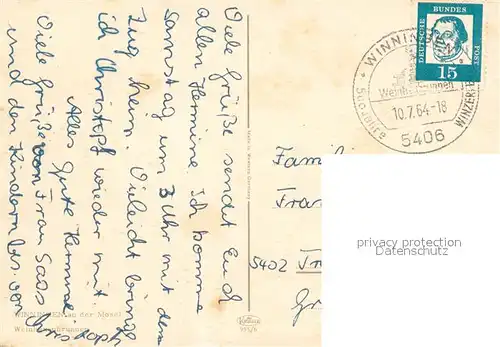 Viele Grüße sendet Euch
allen Hermine. Ich komme
Samstag um 3 Uhr mit dem
Zug heim. Vieleicht bringe
ich Christoph wieder mit
Alles Gute Hermine
Viele Grüße von Frau Sass
und den Kindern bes. von Christoph
WINNINGEN an der Mosel
Weinhexbrunnen
DEUTSCHE BUNDESPOST
15
WINNINGEN
Weinhexbrunnen
10.7.64-18
500 Jahre
5406
WINZER
Famil
Fra
5402
Gr
privacy protection
Datenschutz